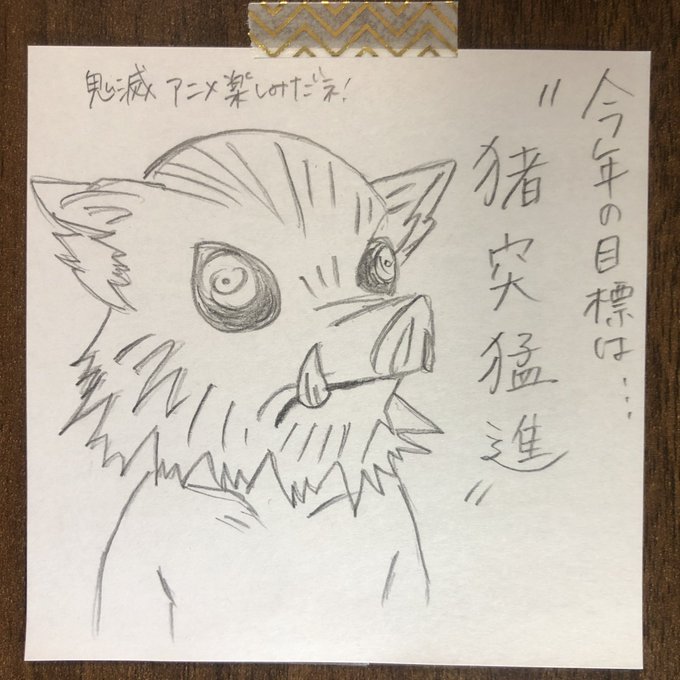 鬼滅アニメ楽しみだネ!
今年の目標は…
"猪突猛進"